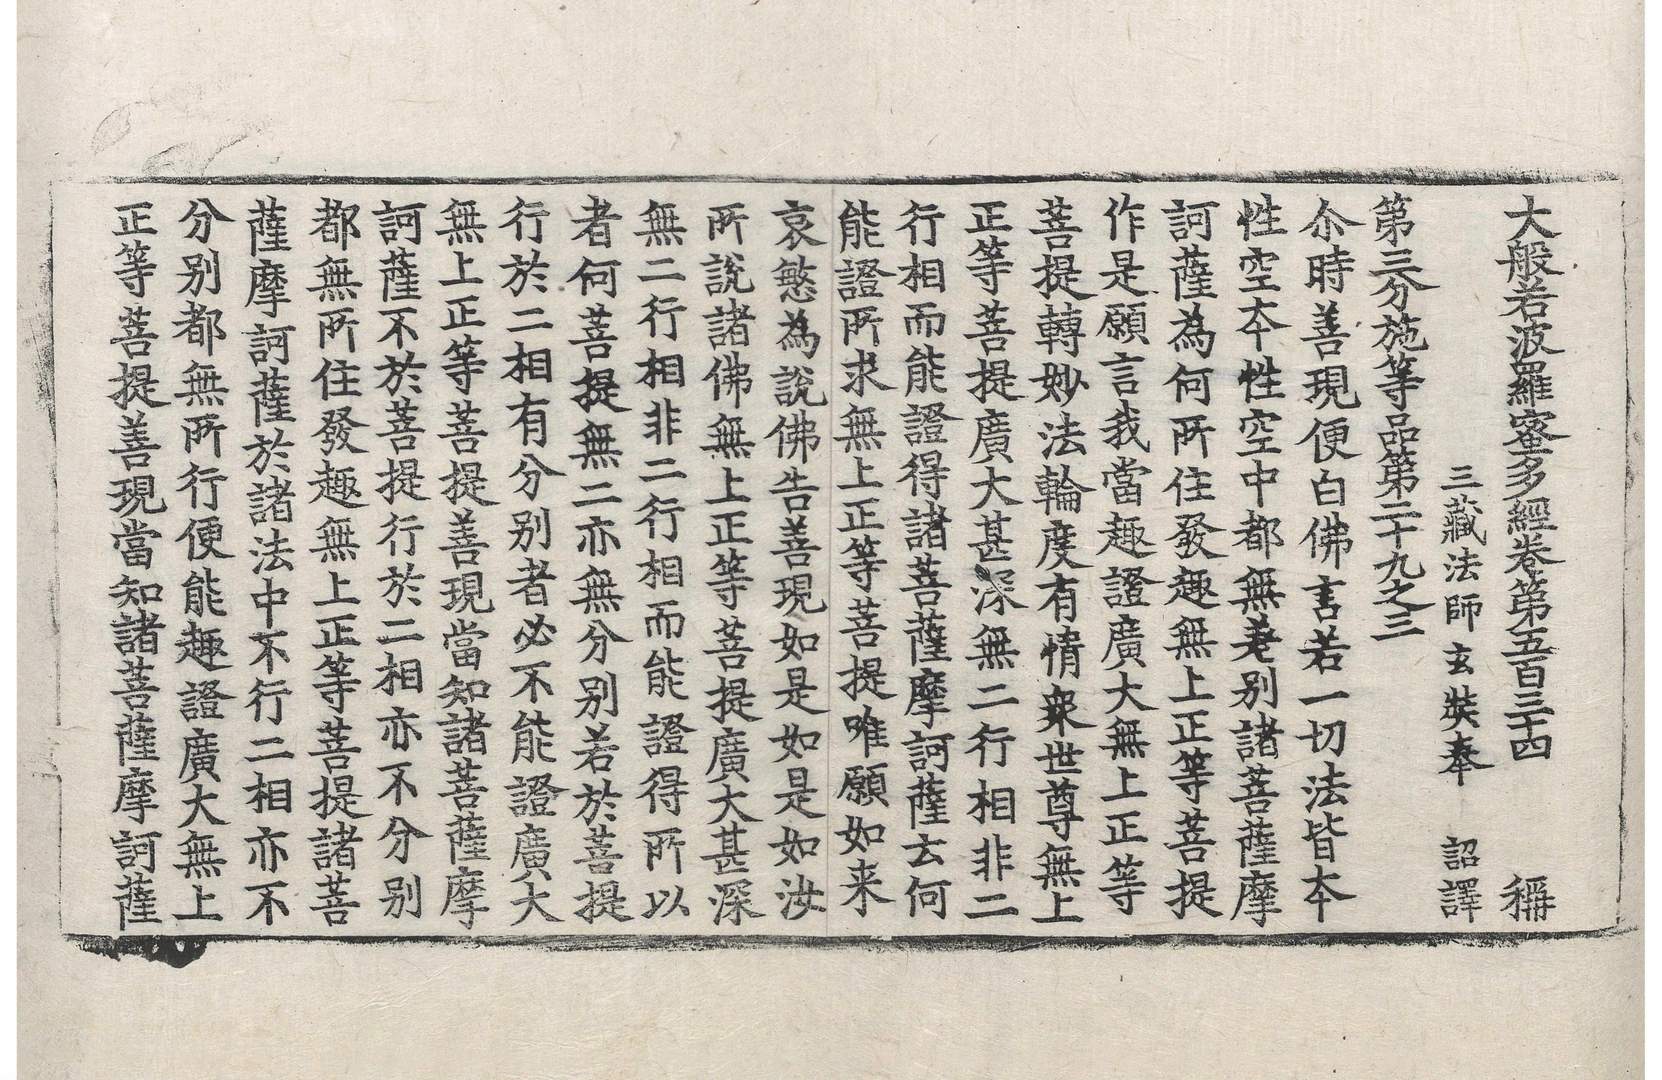 大般若波羅蜜多經卷第五百三十四　稱
三藏法師玄奘奉　詔譯
第三分施等品第二十九之三
尒時善現便白佛言若一切法皆夲
性空夲性空中都無差別諸菩薩摩
訶薩為何所住發趣無上正等菩提
作是願言我當趣證廣大無上正等
菩提轉妙法輪度有情衆世尊無上
正等菩提廣大甚深無二行相非二
行相而能證得諸菩薩摩訶薩云何
能證所求無上正等菩提唯願如来
哀慜為說佛告善現如是如是如汝
所說諸佛無上正等菩提廣大甚深
無二行相非二行相而能證得所以
者何菩提無二亦無分別若於菩提
行於二相有分別者必不能證廣大
無上正等菩提善現當知諸菩薩摩
訶薩不於菩提行於二相亦不分別
都無所住發趣無上正等菩提諸菩
薩摩訶薩於諸法中不行二相亦不
分別都無所行便能趣證廣大無上
正等菩提善現當知諸菩薩摩訶薩